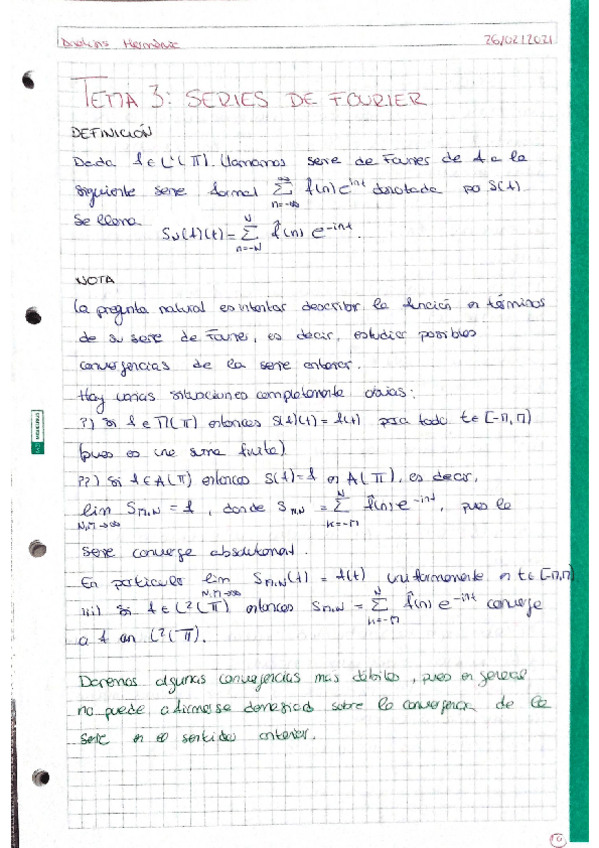 26/02/2021
TEMA 3: SERIES DE FOURIER
DEFINICIÓN
Dada f ∈ L¹(𝕋). Llamamos serie de Fourier de f a la
siguiente serie formal ∑_{n=-∞}^{∞} f̂(n) e^{int} denotada po S(f).
Se llama
S_N(f)(t) = ∑_{n=-N}^{N} f̂(n) e^{-int}.
NOTA
La pregunta natural es intentar describir la función en términos
de su serie de Fourier, es decir, estudiar posibles
convergencias de la serie anterior.
Hay varias situaciones completamente obvias:
i) Si f ∈ Π(𝕋) entonces S(f)(t) = f(t) para todo t ∈ [-π, π)
(pues es una suma finita)
ii) Si f ∈ A(𝕋) entonces S(f) = f en A(𝕋), es decir,
lim_{N,M→∞} S_{M,N} = f, donde S_{M,N} = ∑_{n=-M}^{N} f̂(n) e^{-int}, pues la
serie converge absolutament.
En particular lim_{N,M→∞} S_{M,N}(t) = f(t) uniformemente en t ∈ [-π, π)
iii) Si f ∈ L²(𝕋) entonces S_{M,N} = ∑_{n=-M}^{N} f̂(n) e^{-int} converge
a f en L²(𝕋).
Daremos algunas convergencias mas débiles, pues en general
no puede afirmarse demasiado sobre la convergencia de la
serie en el sentido anterior.